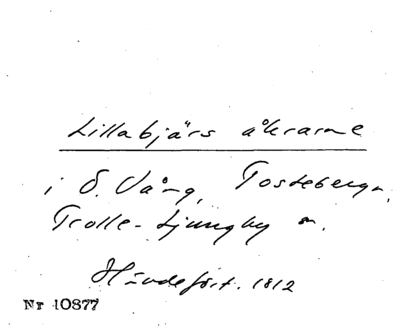 Lillabjärs åkrarne
i Ö. Vång, Tosteberga,
Trolle-Ljungby sn.
Häradsfört. 1812
Nr 10877